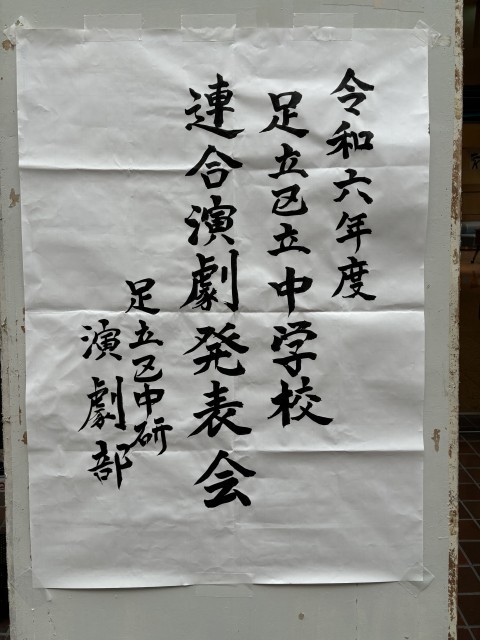 令和六年度
足立区立中学校
連合演劇発表会
足立区中研
演劇部